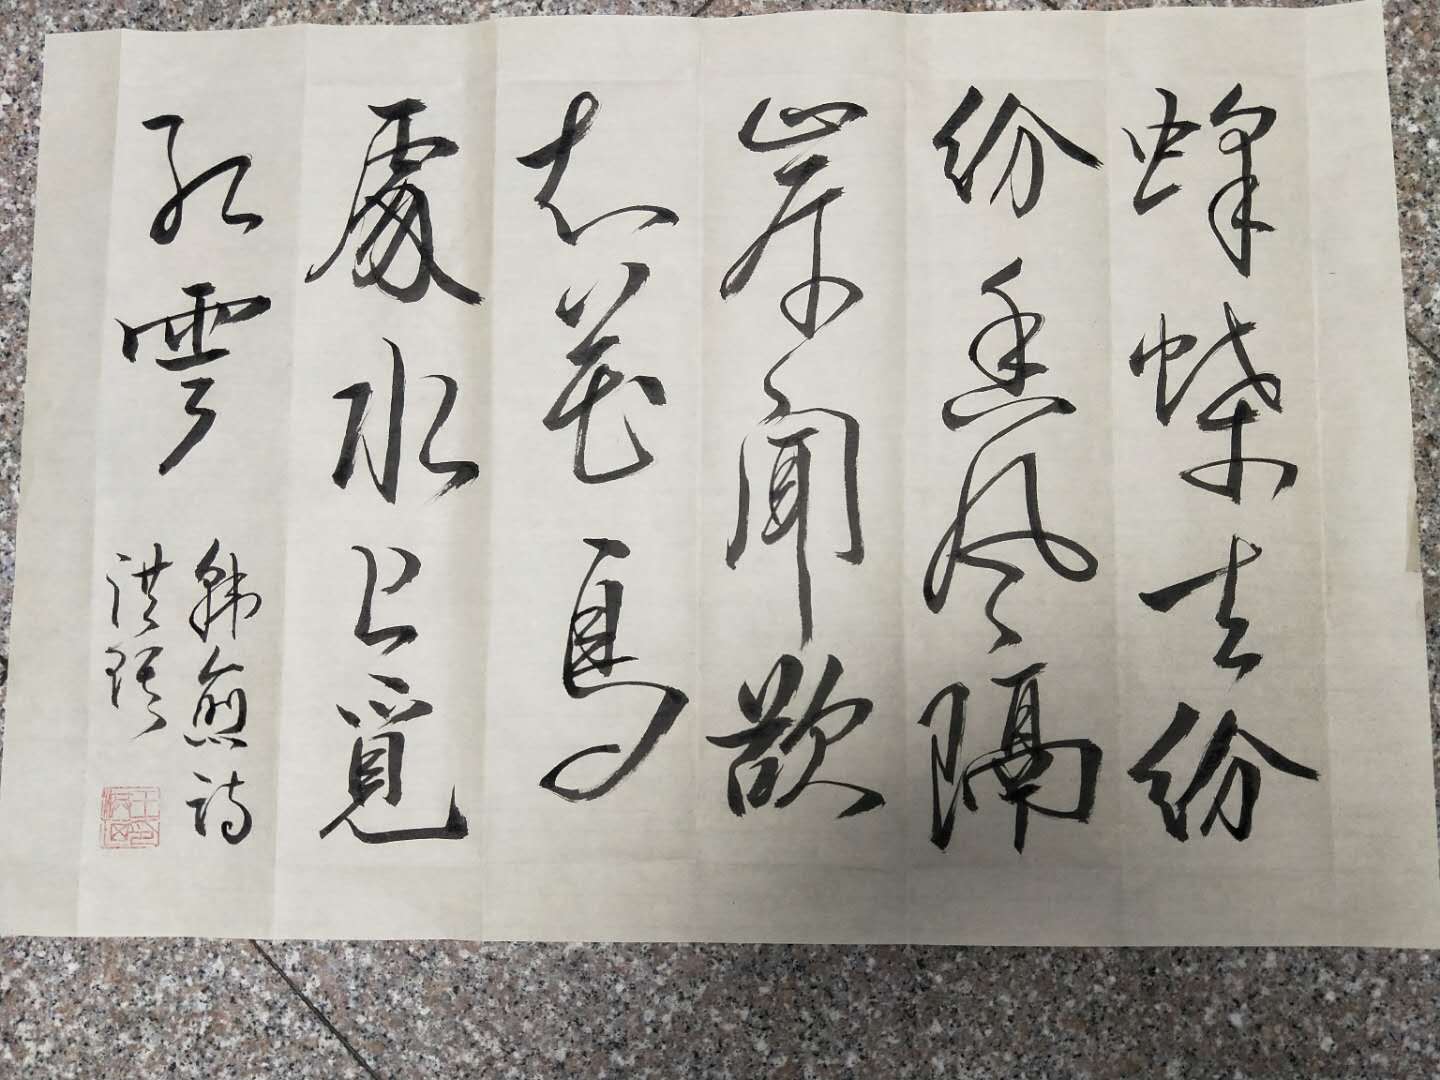 蜂蝶去纷
纷香风隔
岸闻欲
知花岛
处水上觅
红云
韩愈诗
洪